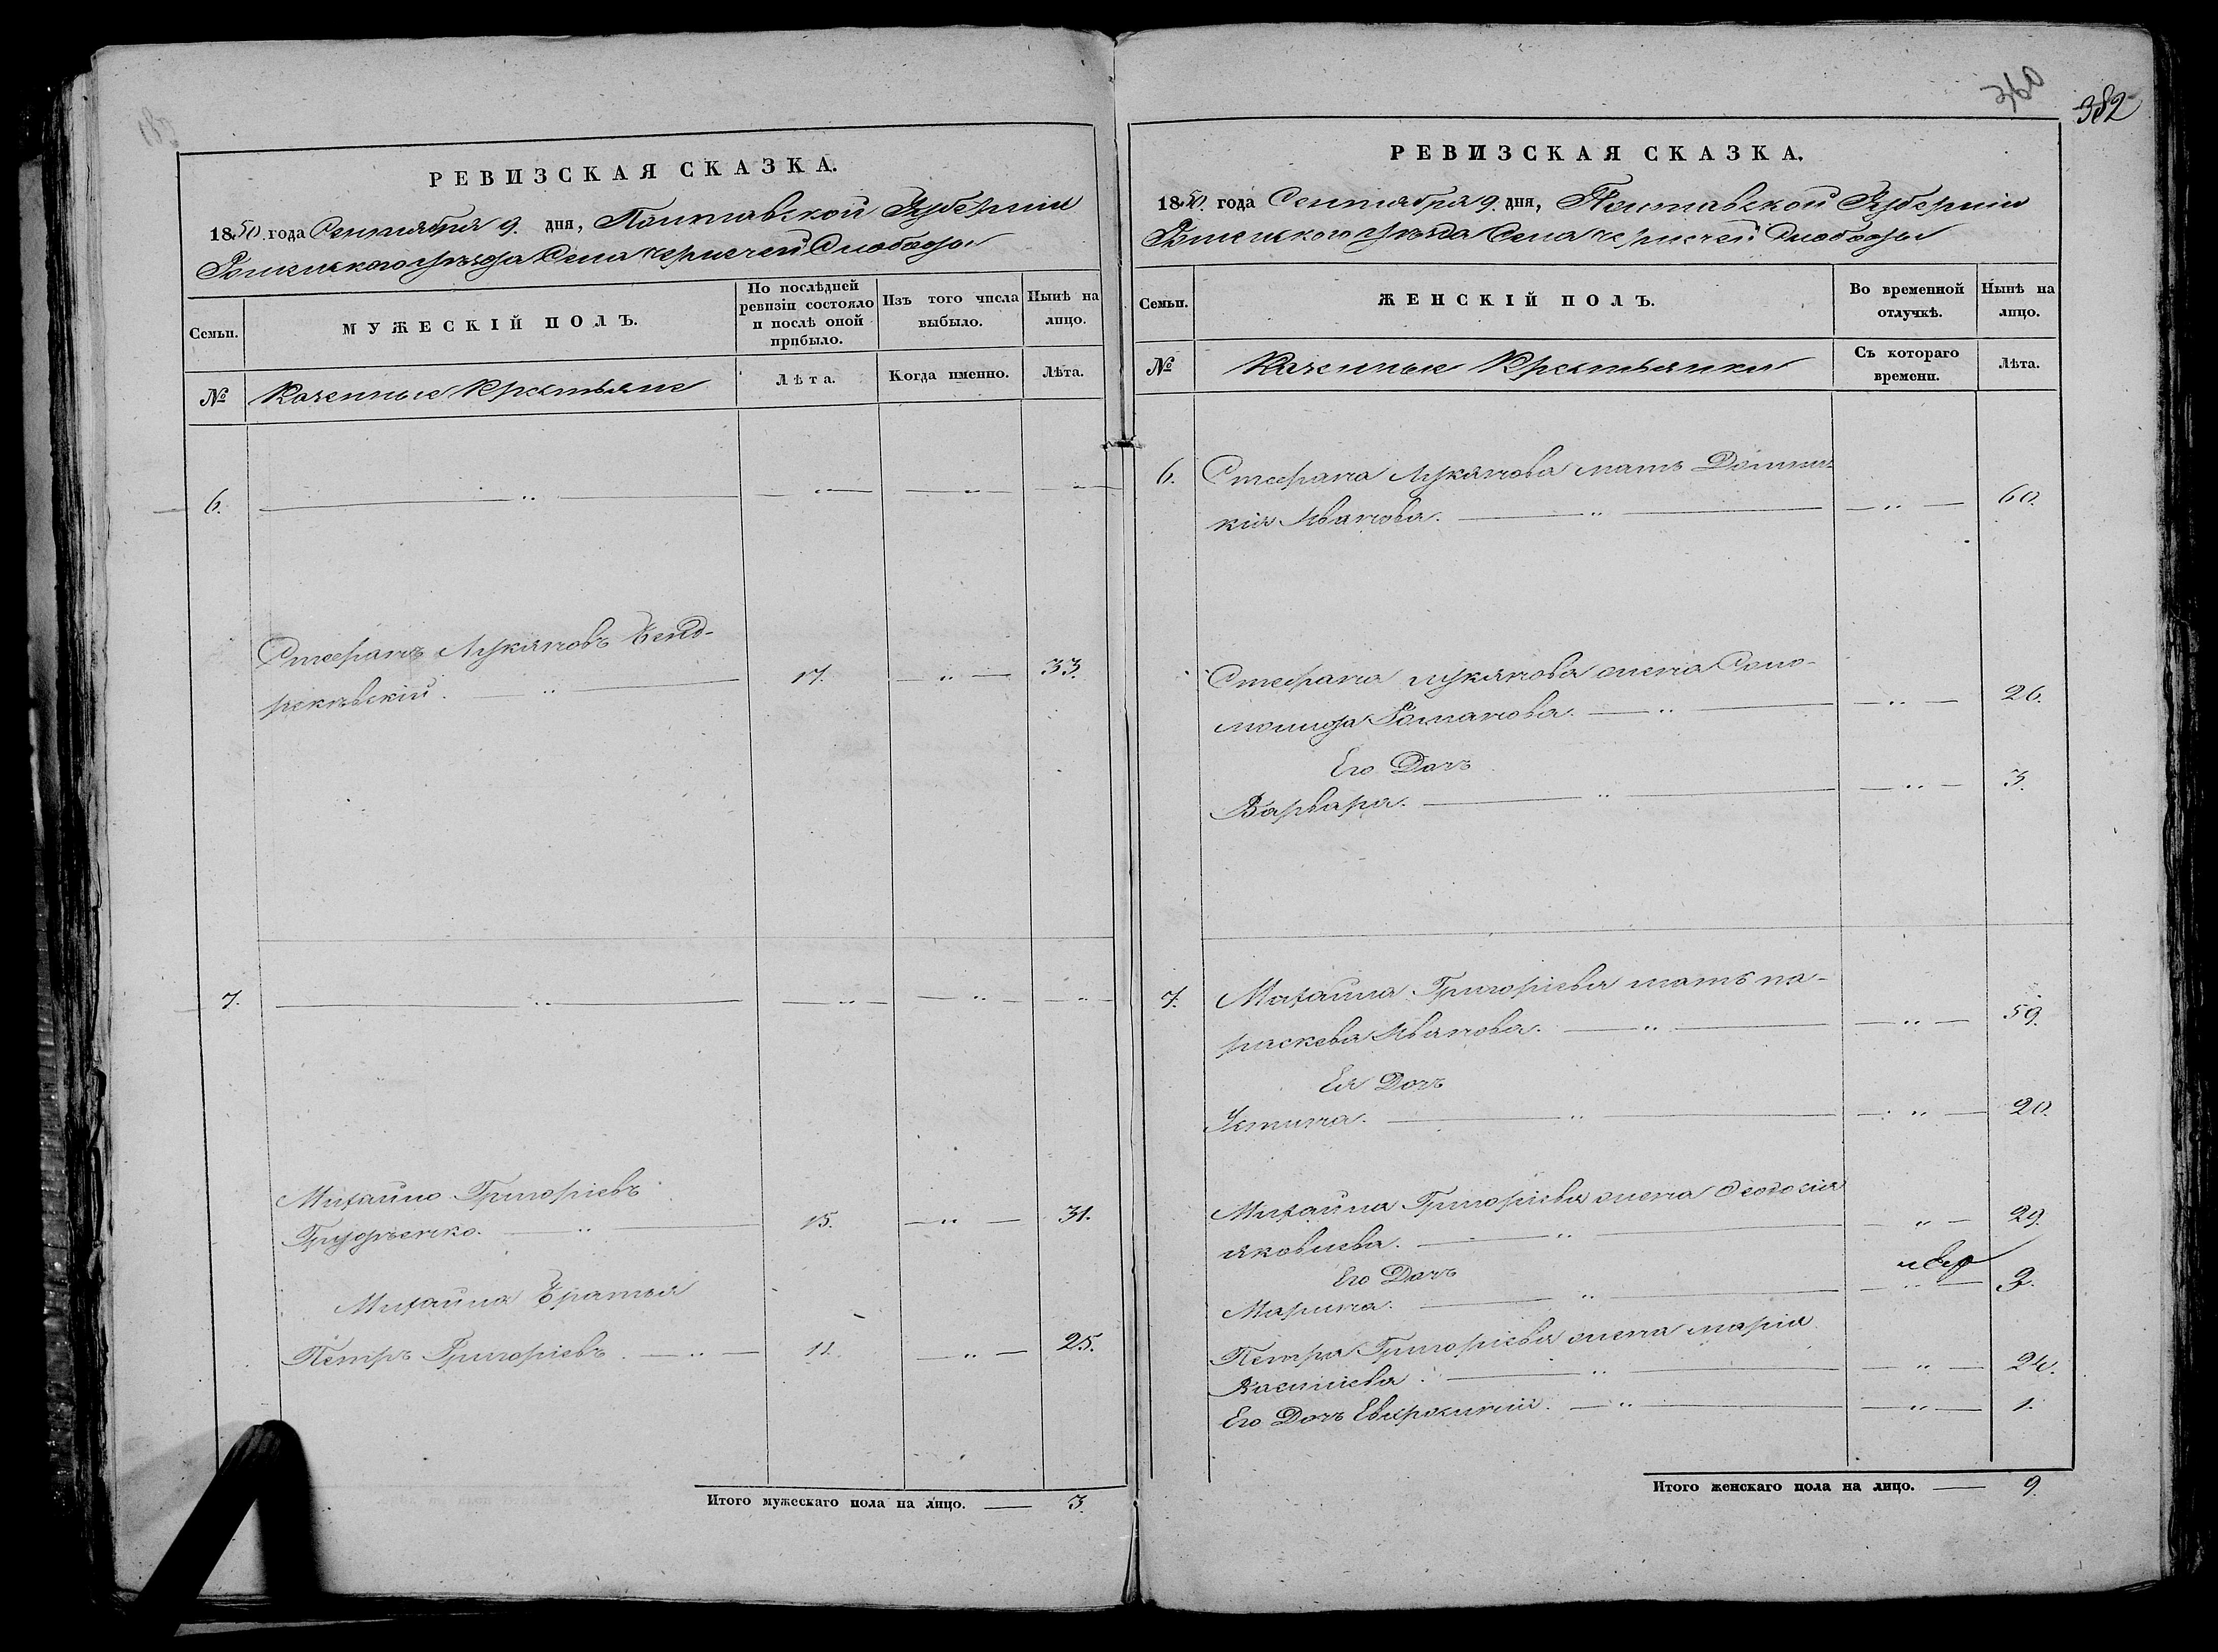 РЕВИЗСКАЯ СКАЗКА.
1850 года Сентября 9. дня, Полтавской Губернии
Роменского уѣзда Села Чернечей Слободы
Семьи.
МУЖЕСКІЙ ПОЛЪ.
По послѣдней ревизіи состояло и послѣ оной прибыло.
Изъ того числа выбыло.
Нынѣ на лицо.
№
Казенные Крестьяне
Лѣта.
Когда именно.
Лѣта.
6.
Стефанъ Лукяновъ
17. 33.
7.
Михайло Григоріевъ
15. 31.
Михайла Братья
Петръ Григоріевъ. 11. 25.
Итого мужескаго пола на лицо. 3.
360
382
РЕВИЗСКАЯ СКАЗКА.
1850. года Сентября 9. дня, Полтавской Губернии
Роменского уѣзда Села Чернечей Слободы
Семьи.
ЖЕНСКІЙ ПОЛЪ.
Во временной отлучкѣ.
Нынѣ на лицо.
№
Казенные Крестьянки
Съ котораго времени.
Лѣта.
6. Стефана Лукянова мать Домни-
кія Иванова. 60.
Стефана Лукянова жена Соло-
монида Романова. 26.
Его Дочь
Варвара. 3.
7. Михайла Григоріева мать Па-
раскева Иванова. 59.
Ея Дочь
Устина. 20.
Михайла Григоріева жена Феодосия
Яковлева. 29.
Его Дочь
Марина. 2.
Петра Григоріева жена Марія
Василіева. 24.
Его Дочь Евфросинія. 1.
Итого женскаго пола на лицо. 9.